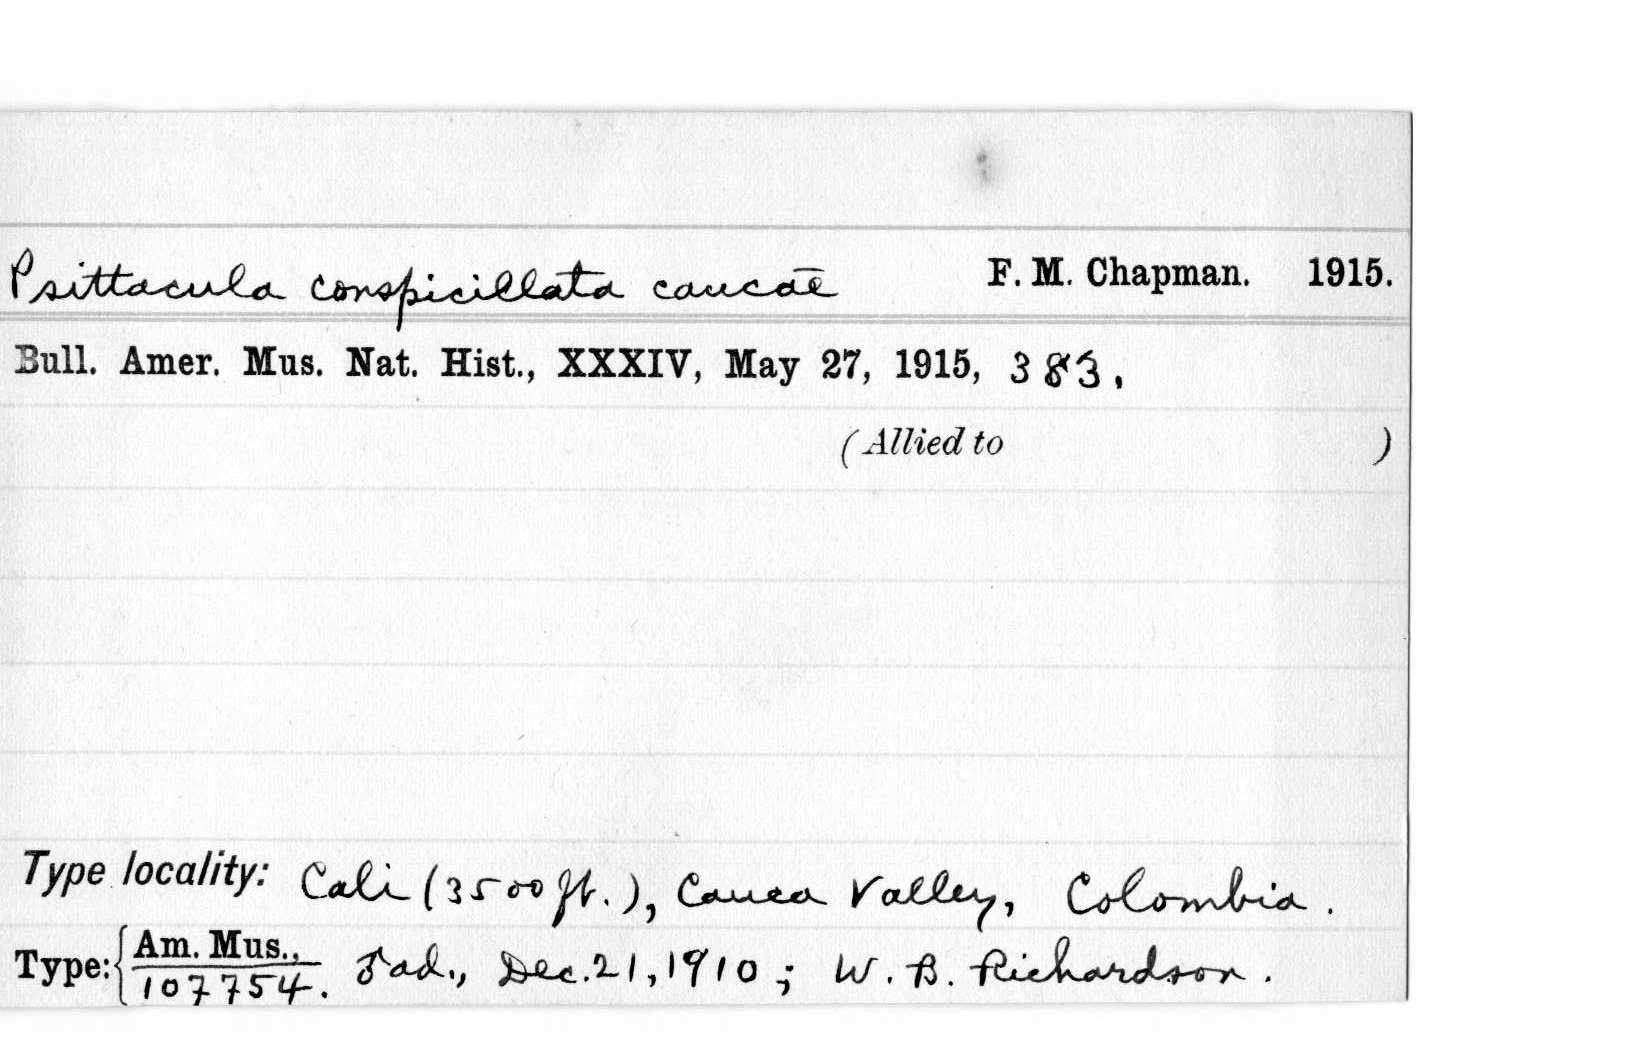 Psittacula conspicillata caucae F. M. Chapman. 1915.
Bull. Amer. Mus. Nat. Hist., XXXIV, May 27, 1915, 383.
(Allied to )
Type locality: Cali (3500 ft.), Cauca Valley, Colombia.
Type: Am. Mus., 107754. ♂ad., Dec. 21, 1910; W. B. Richardson.